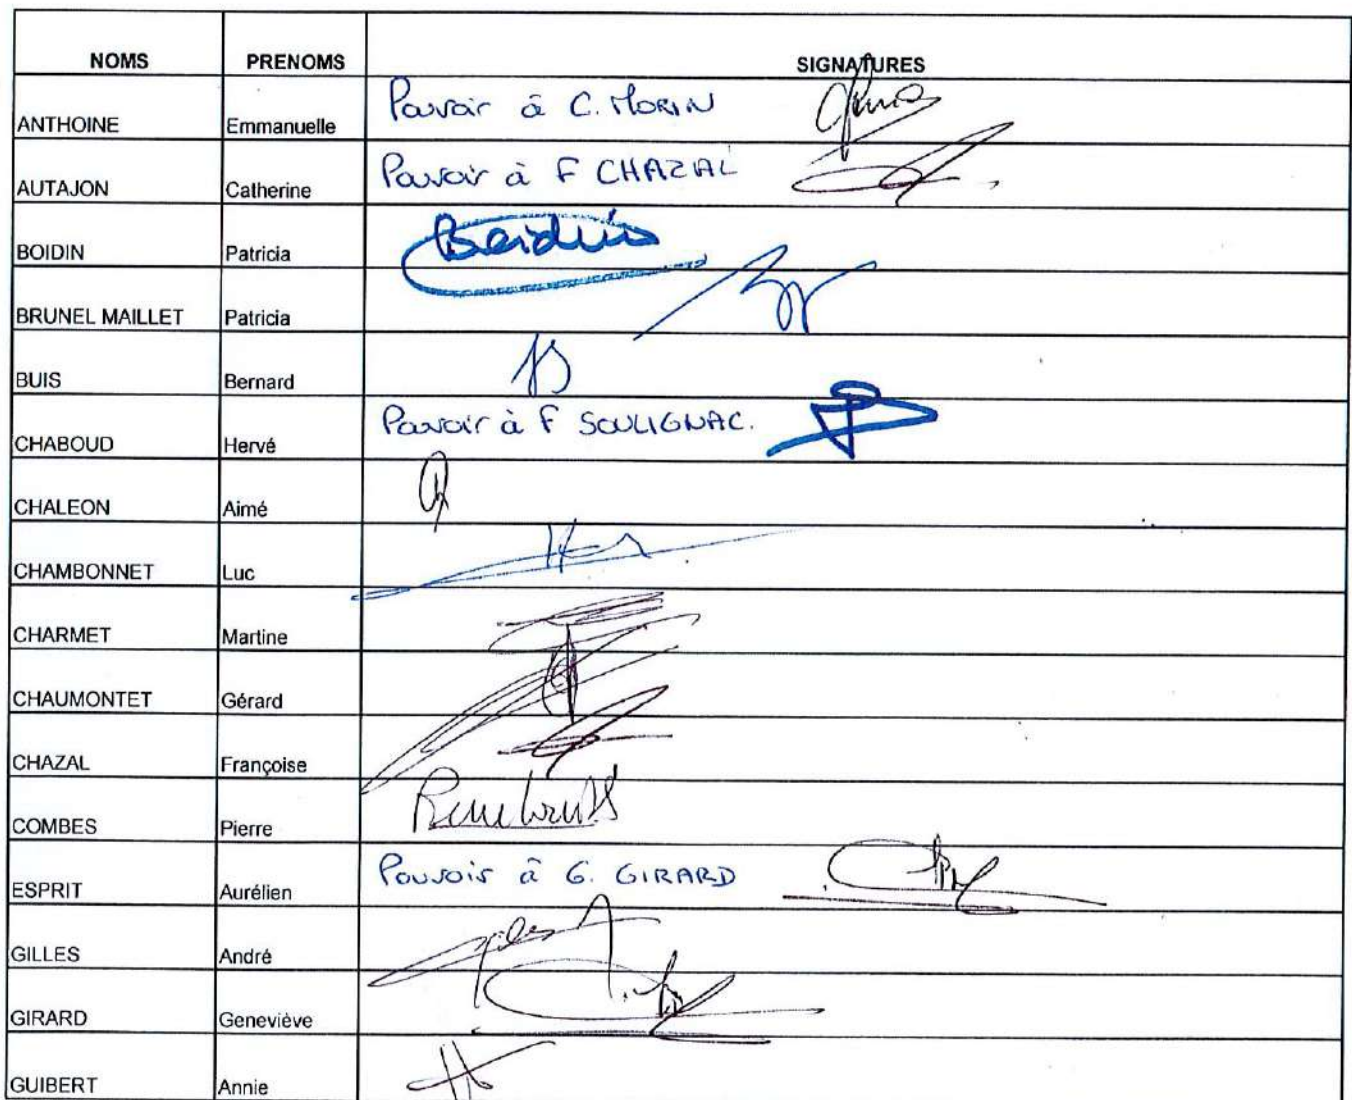 NOMS PRENOMS SIGNATURES
ANTHOINE Emmanuelle Pouvoir à C. MORIN
AUTAJON Catherine Pouvoir à F CHAZAL
BOIDIN Patricia Boidin
BRUNEL MAILLET Patricia
BUIS Bernard
CHABOUD Hervé Pouvoir à F SOULIGNAC.
CHALEON Aimé
CHAMBONNET Luc
CHARMET Martine
CHAUMONTET Gérard
CHAZAL Françoise
COMBES Pierre
ESPRIT Aurélien Pouvoir à G. GIRARD
GILLES André
GIRARD Geneviève
GUIBERT Annie